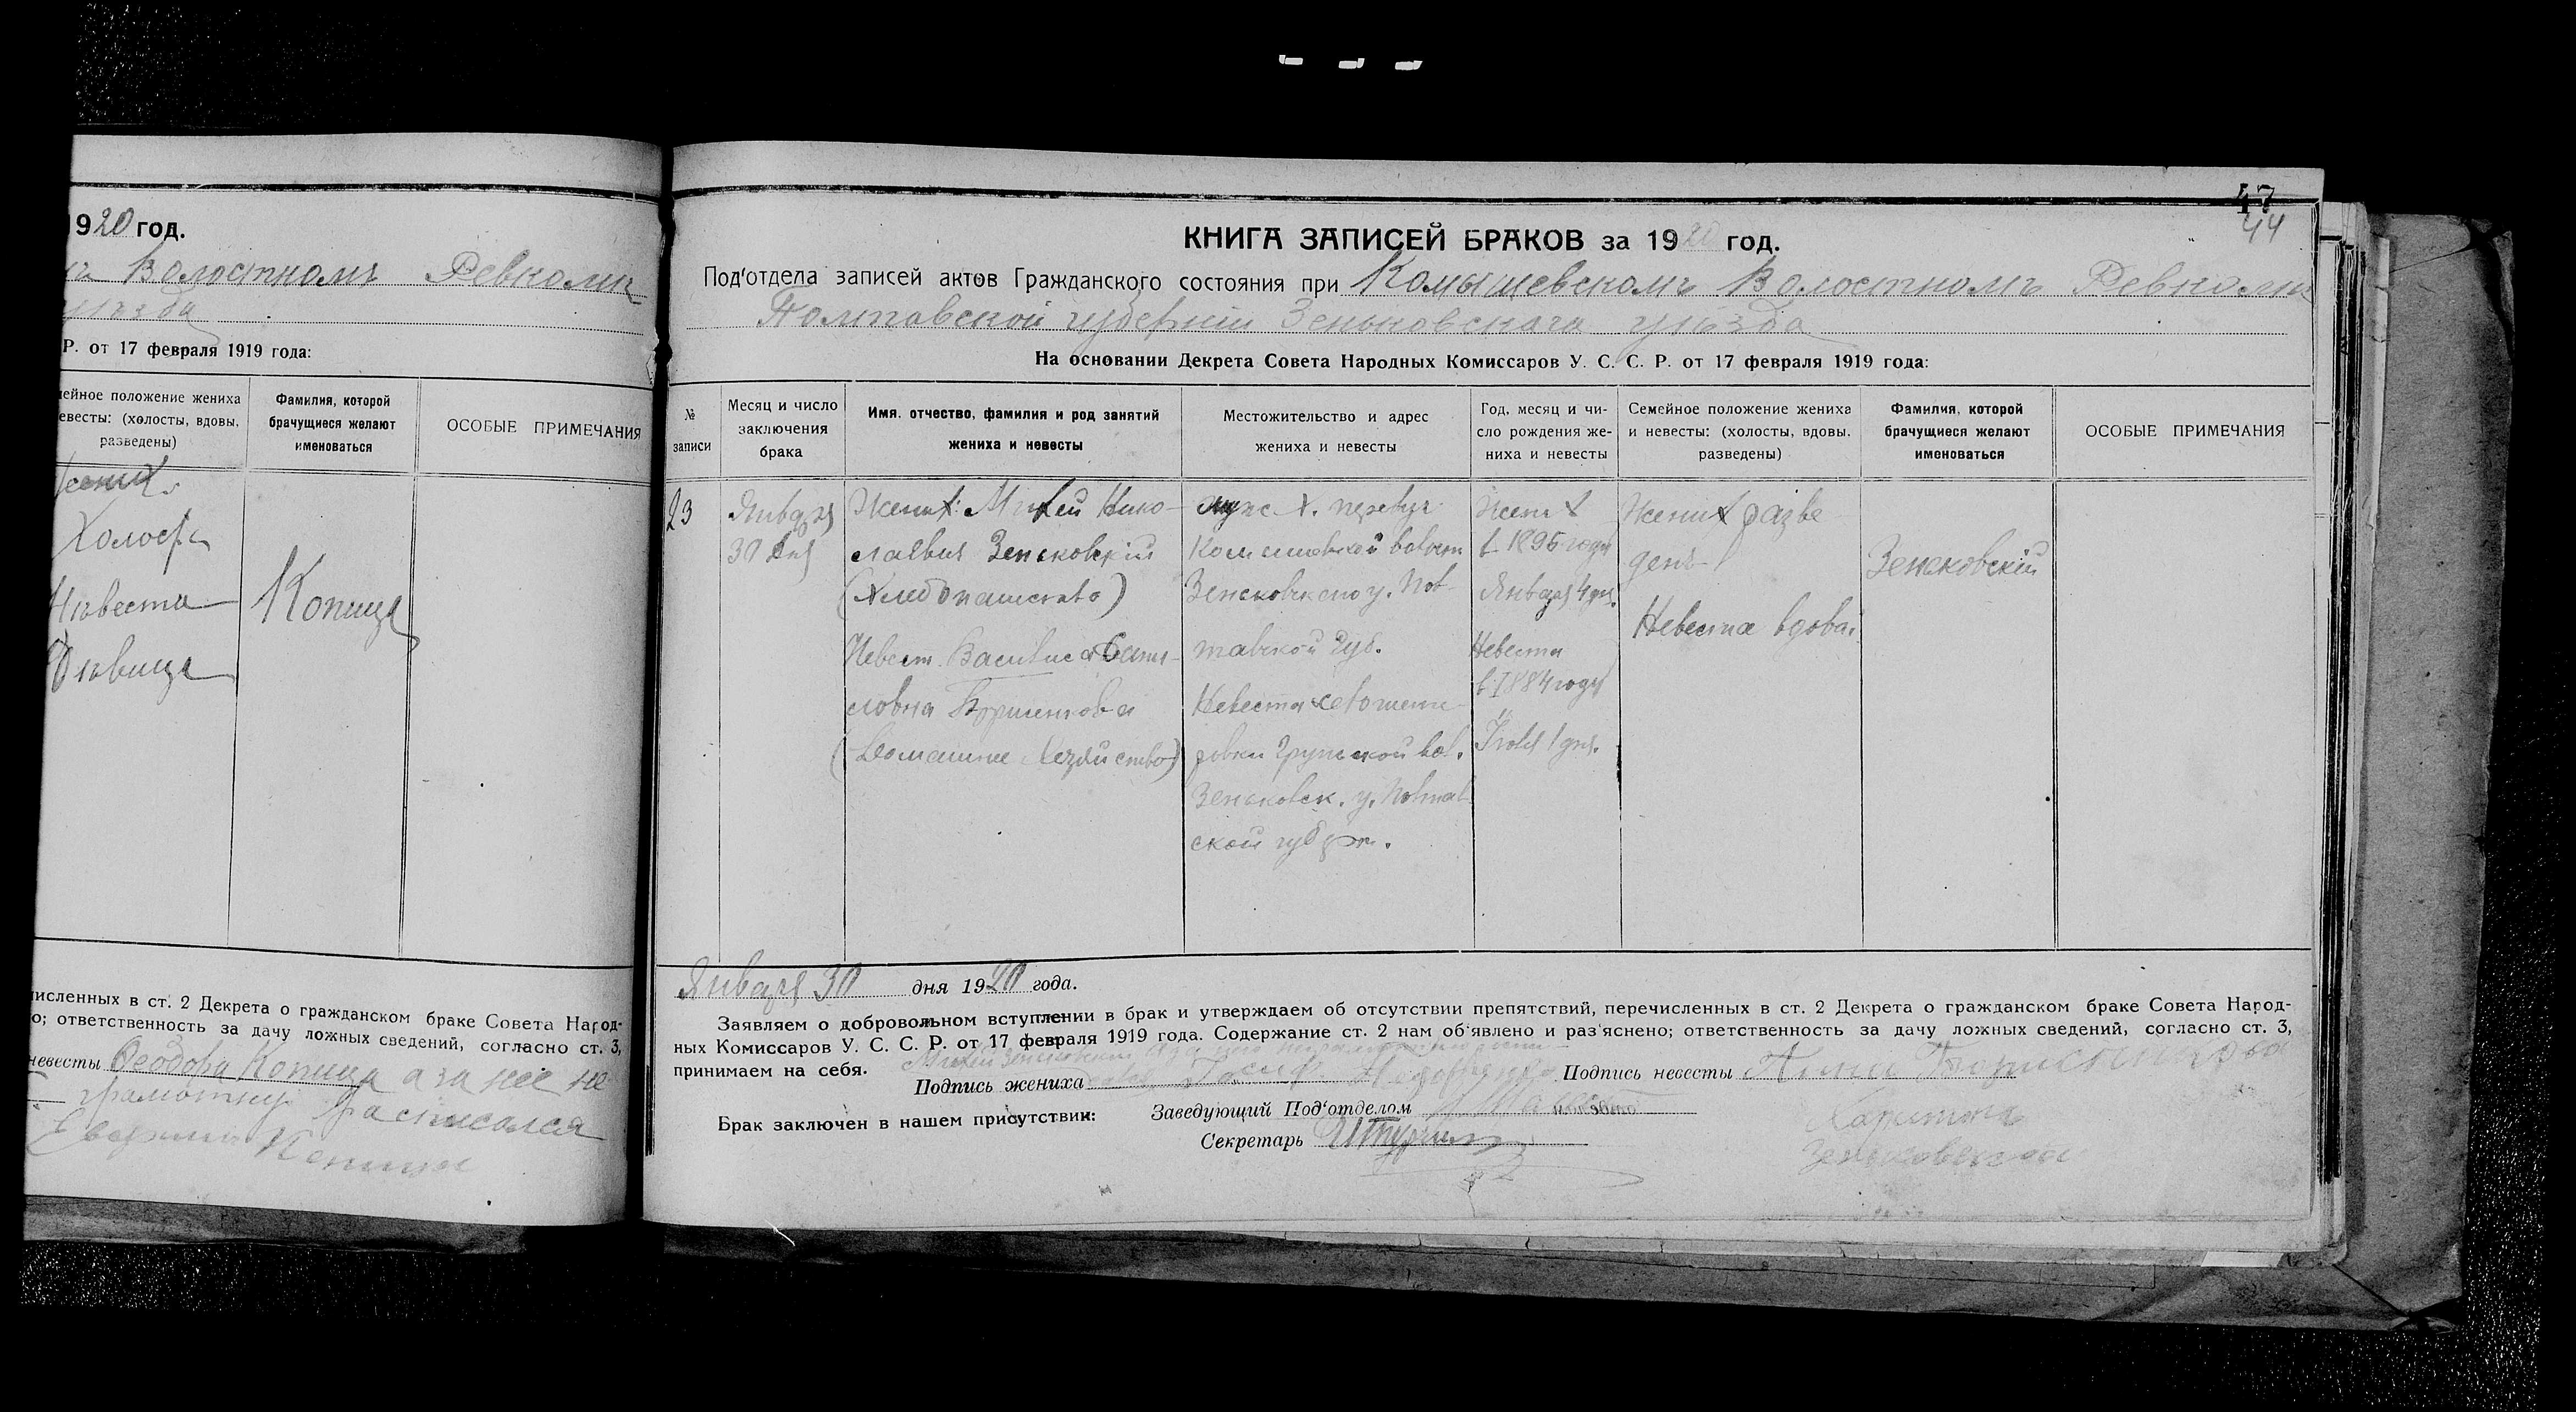 1920 год.
Волостномъ Ревком
уѣзда
Р. от 17 февраля 1919 года:
ейное положение жениха
евесты: (холосты, вдовы,
разведены)
Фамилия, которой
брачущиеся желают
именоваться
ОСОБЫЕ ПРИМЕЧАНИЯ
Жених
Холост
Невеста
Девица
Копица
численных в ст. 2 Декрета о гражданском браке Совета Народ-
о; ответственность за дачу ложных сведений, согласно ст. 3,
невесты Феодора Копица а за нее не
грамотну расписался
Копица
47
44
КНИГА ЗАПИСЕЙ БРАКОВ за 1920 год.
Под'отдела записей актов Гражданского состояния при Комышевскомъ Волостномъ Ревком
Полтавской губернии Зеньковскаго уѣзда
На основании Декрета Совета Народных Комиссаров У. С. С. Р. от 17 февраля 1919 года:
№
записи
Месяц и число
заключения
брака
Имя, отчество, фамилия и род занятий
жениха и невесты
Местожительство и адрес
жениха и невесты
Год, месяц и чи-
сло рождения же-
ниха и невесты
Семейное положение жениха
и невесты: (холосты, вдовы,
разведены)
Фамилия, которой
брачущиеся желают
именоваться
ОСОБЫЕ ПРИМЕЧАНИЯ
23
Января
30 дня
Жених: Михей Нико-
лаевич Зеньковский
(Хлебопашество)
Невест. Василиса
словна
(Домашнее Хозяйство)
Комышевской волост
Зеньковского у. Пол-
тавской Губ.
Невеста
ровки Грунской вол.
Зеньковск. у. Полтав
ской губерн.
Жених
в 1895 году
Января 4 дня.
Невеста
в 1884 году
1 дня.
Жених разве
денъ
Невеста вдова.
Зеньковский
Января 30 дня 1920 года.
Заявляем о добровольном вступлении в брак и утверждаем об отсутствии препятствий, перечисленных в ст. 2 Декрета о гражданском браке Совета Народ-
ных Комиссаров У. С. С. Р. от 17 февраля 1919 года. Содержание ст. 2 нам об'явлено и раз'яснено; ответственность за дачу ложных сведений, согласно ст. 3,
принимаем на себя.
Михей Зеньковский
Подпись жениха
Подпись невесты
Брак заключен в нашем присутствии:
Заведующий Под'отделом
Секретарь
Зеньковская